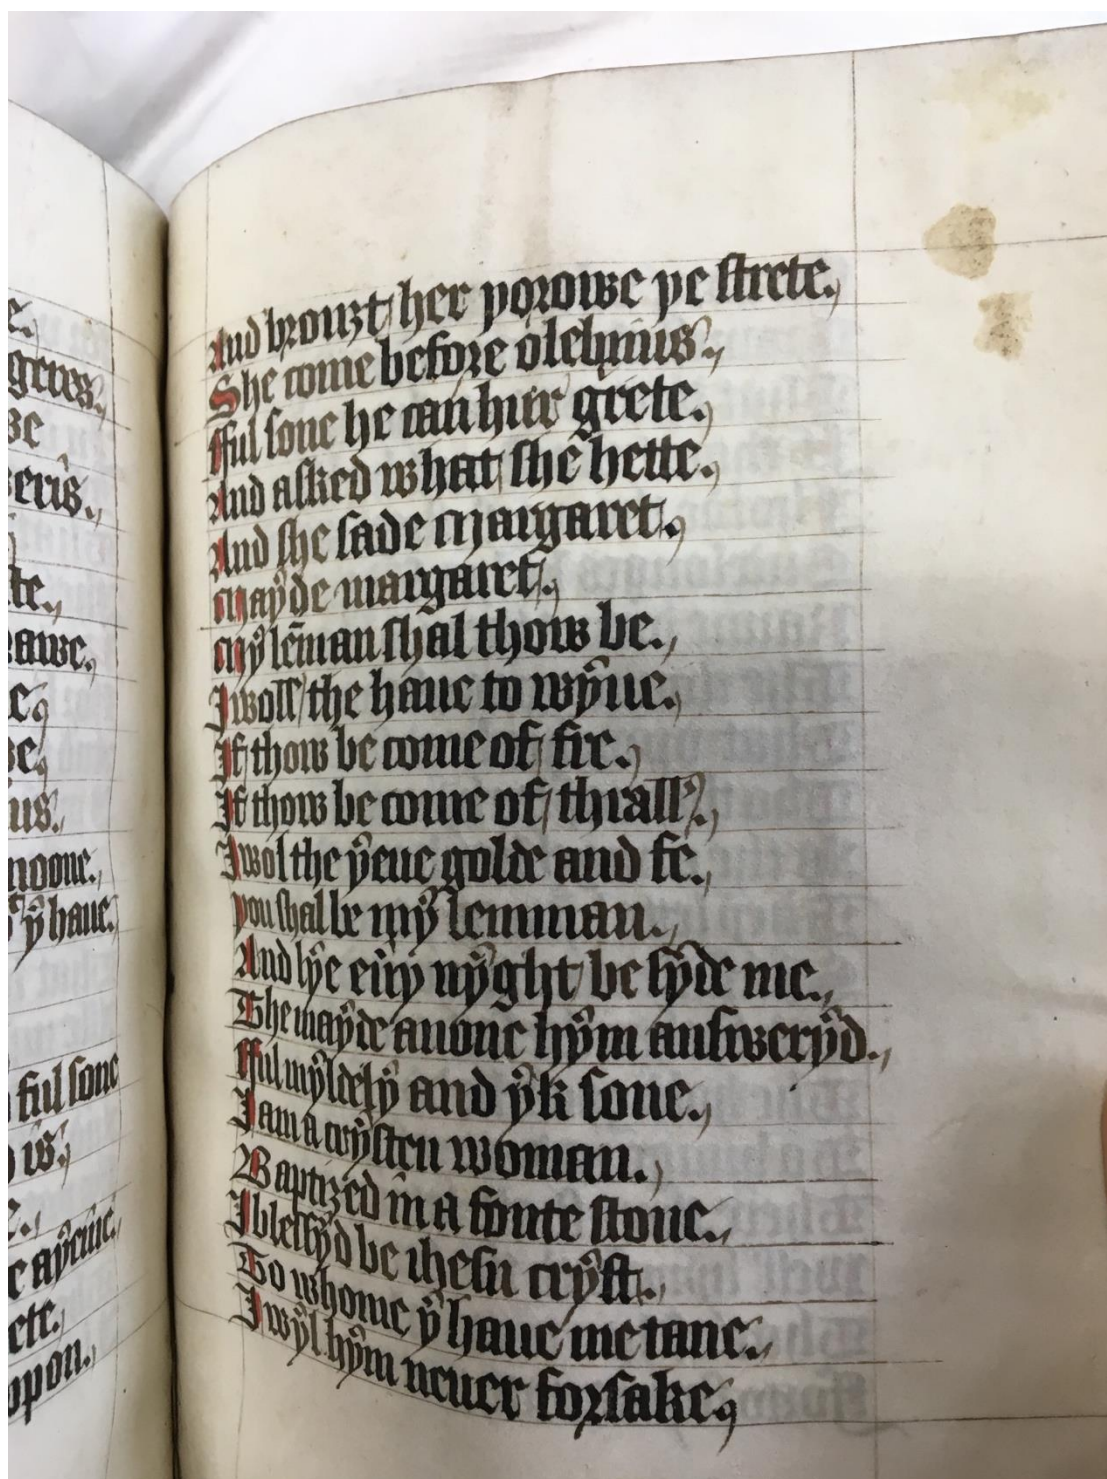 e.
greves.
se
eris.
te.
awe.
e
se
us.
noone.
ẏ haue.
ful sone
is.
e.
e aẏeine.
ete.
opon.
And brouzt her yorowe ye strete.
She come before olebrius.
fful sone he can hur grete.
And asked what she hette.
And she sade Margaret.
Maẏde margaret.
Mẏ lēman shal thow be.
I woll the haue to wẏue.
If thow be come of fre.
If thow be come of thrall.
I wol the ẏeue golde and fe.
you shal be mẏ lemman.
And lẏe eũy nẏght be sẏde me.
The maẏde anone hẏm answerẏd.
fful mẏldelẏ and ẏk sone.
I am a crẏsten woman.
Baptized in a fonte stone.
I blessẏd be ihesu crẏst.
To whome ẏ haue me tane.
I wẏl hẏm neuer forsake